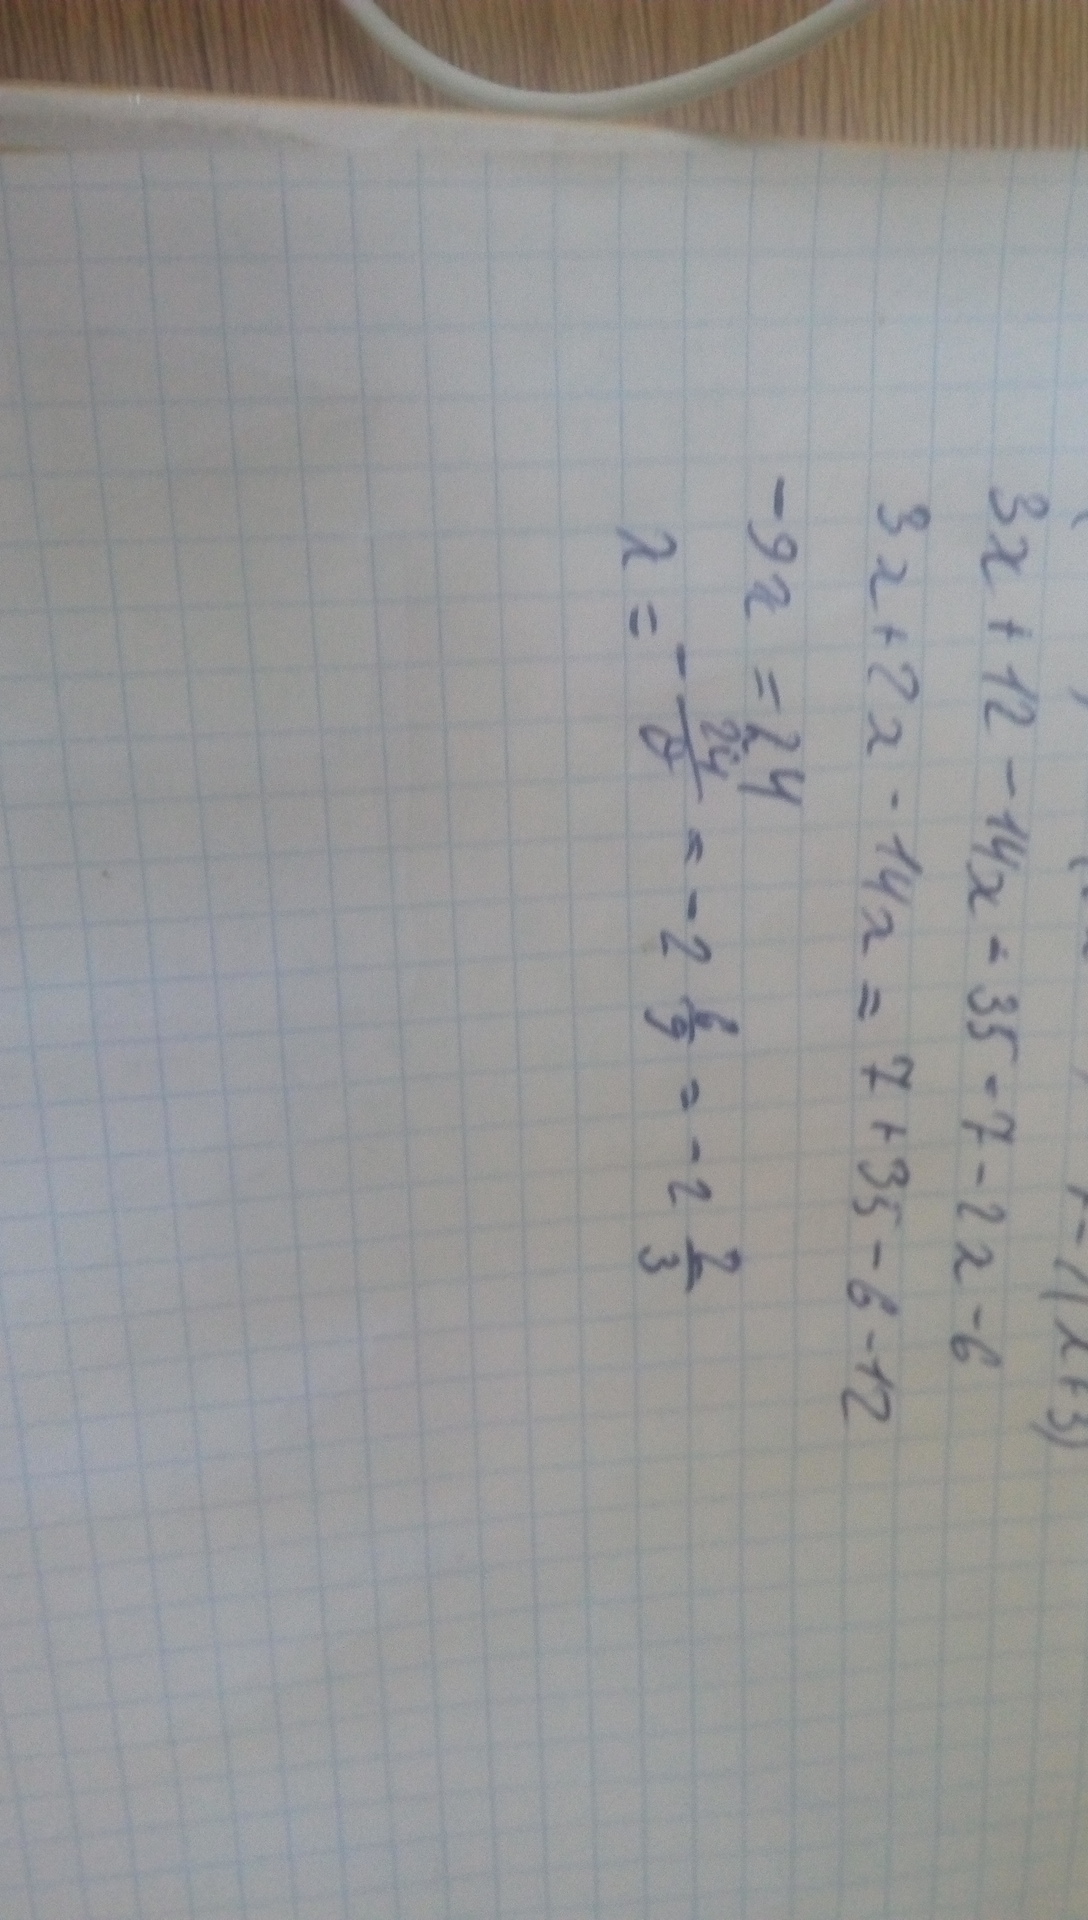 3x + 12 - 14x - 35 = 7 - 2x - 6
3x + 2x - 14x = 7 + 35 - 6 - 12
-9x = 24
x = - 24/9 = -2 6/9 = -2 2/3